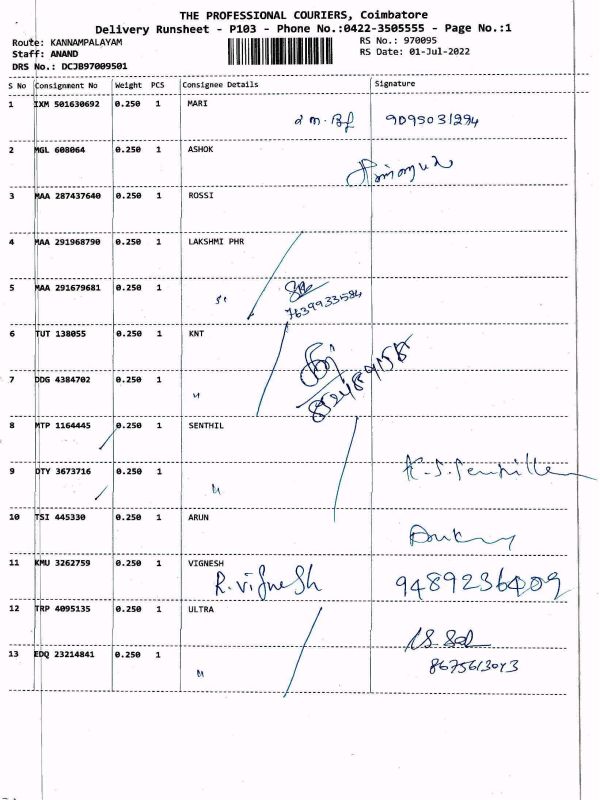 THE PROFESSIONAL COURIERS, Coimbatore
Delivery Runsheet - P103 - Phone No.:0422-3505555 - Page No.:1
Route: KANNAMPALAYAM RS No.: 970095
Staff: ANAND RS Date: 01-Jul-2022
DRS No.: DCJB97009501
S No Consignment No Weight PCS Consignee Details Signature
1 IXM 501630692 0.250 1 MARI
9095031294
2 MGL 608064 0.250 1 ASHOK
3 MAA 287437640 0.250 1 ROSSI
4 MAA 291968790 0.250 1 LAKSHMI PHR
5 MAA 291679681 0.250 1 "
7639933584
6 TUT 138055 0.250 1 KNT
7 DDG 4384702 0.250 1 "
8 MTP 1164445 0.250 1 SENTHIL
9 OTY 3673716 0.250 1 "
10 TSI 445330 0.250 1 ARUN
11 KMU 3262759 0.250 1 VIGNESH
R.vignesh 9489236409
12 TRP 4095135 0.250 1 ULTRA
13 EDQ 23214841 0.250 1 "